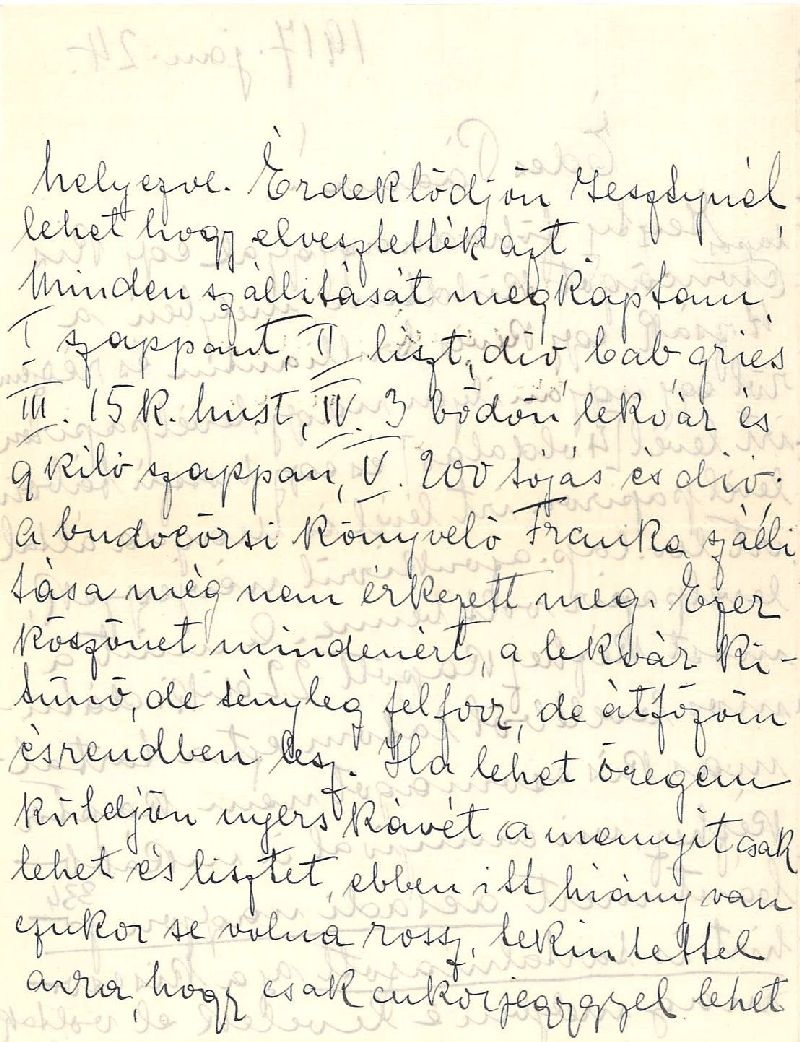 helyezve. Érdeklődjön Jesztynél
lehet hogy elvesztették azt.
Minden szállitását megkaptam,
I szappant, II liszt, dió bab gries
III. 15 k. hust, IV. 3 bödön lekvár és
9 kiló szappan, V. 200 tojás és dió.
a budaörsi könyvelő Franka szálli
tása még nem érkezett meg. Ezer
köszönet mindenért, a lekvár ki-
tünő, de tényleg felforr, de átfőzöm
és rendben lesz. Ha lehet öregem
küldjön nyers kávét a mennyit csak
lehet és lisztet, ebben itt hiány van
czukor se volna rossz, tekintettel
arra, hogy csak cukorjegygyel lehet
1917. jan. 24.